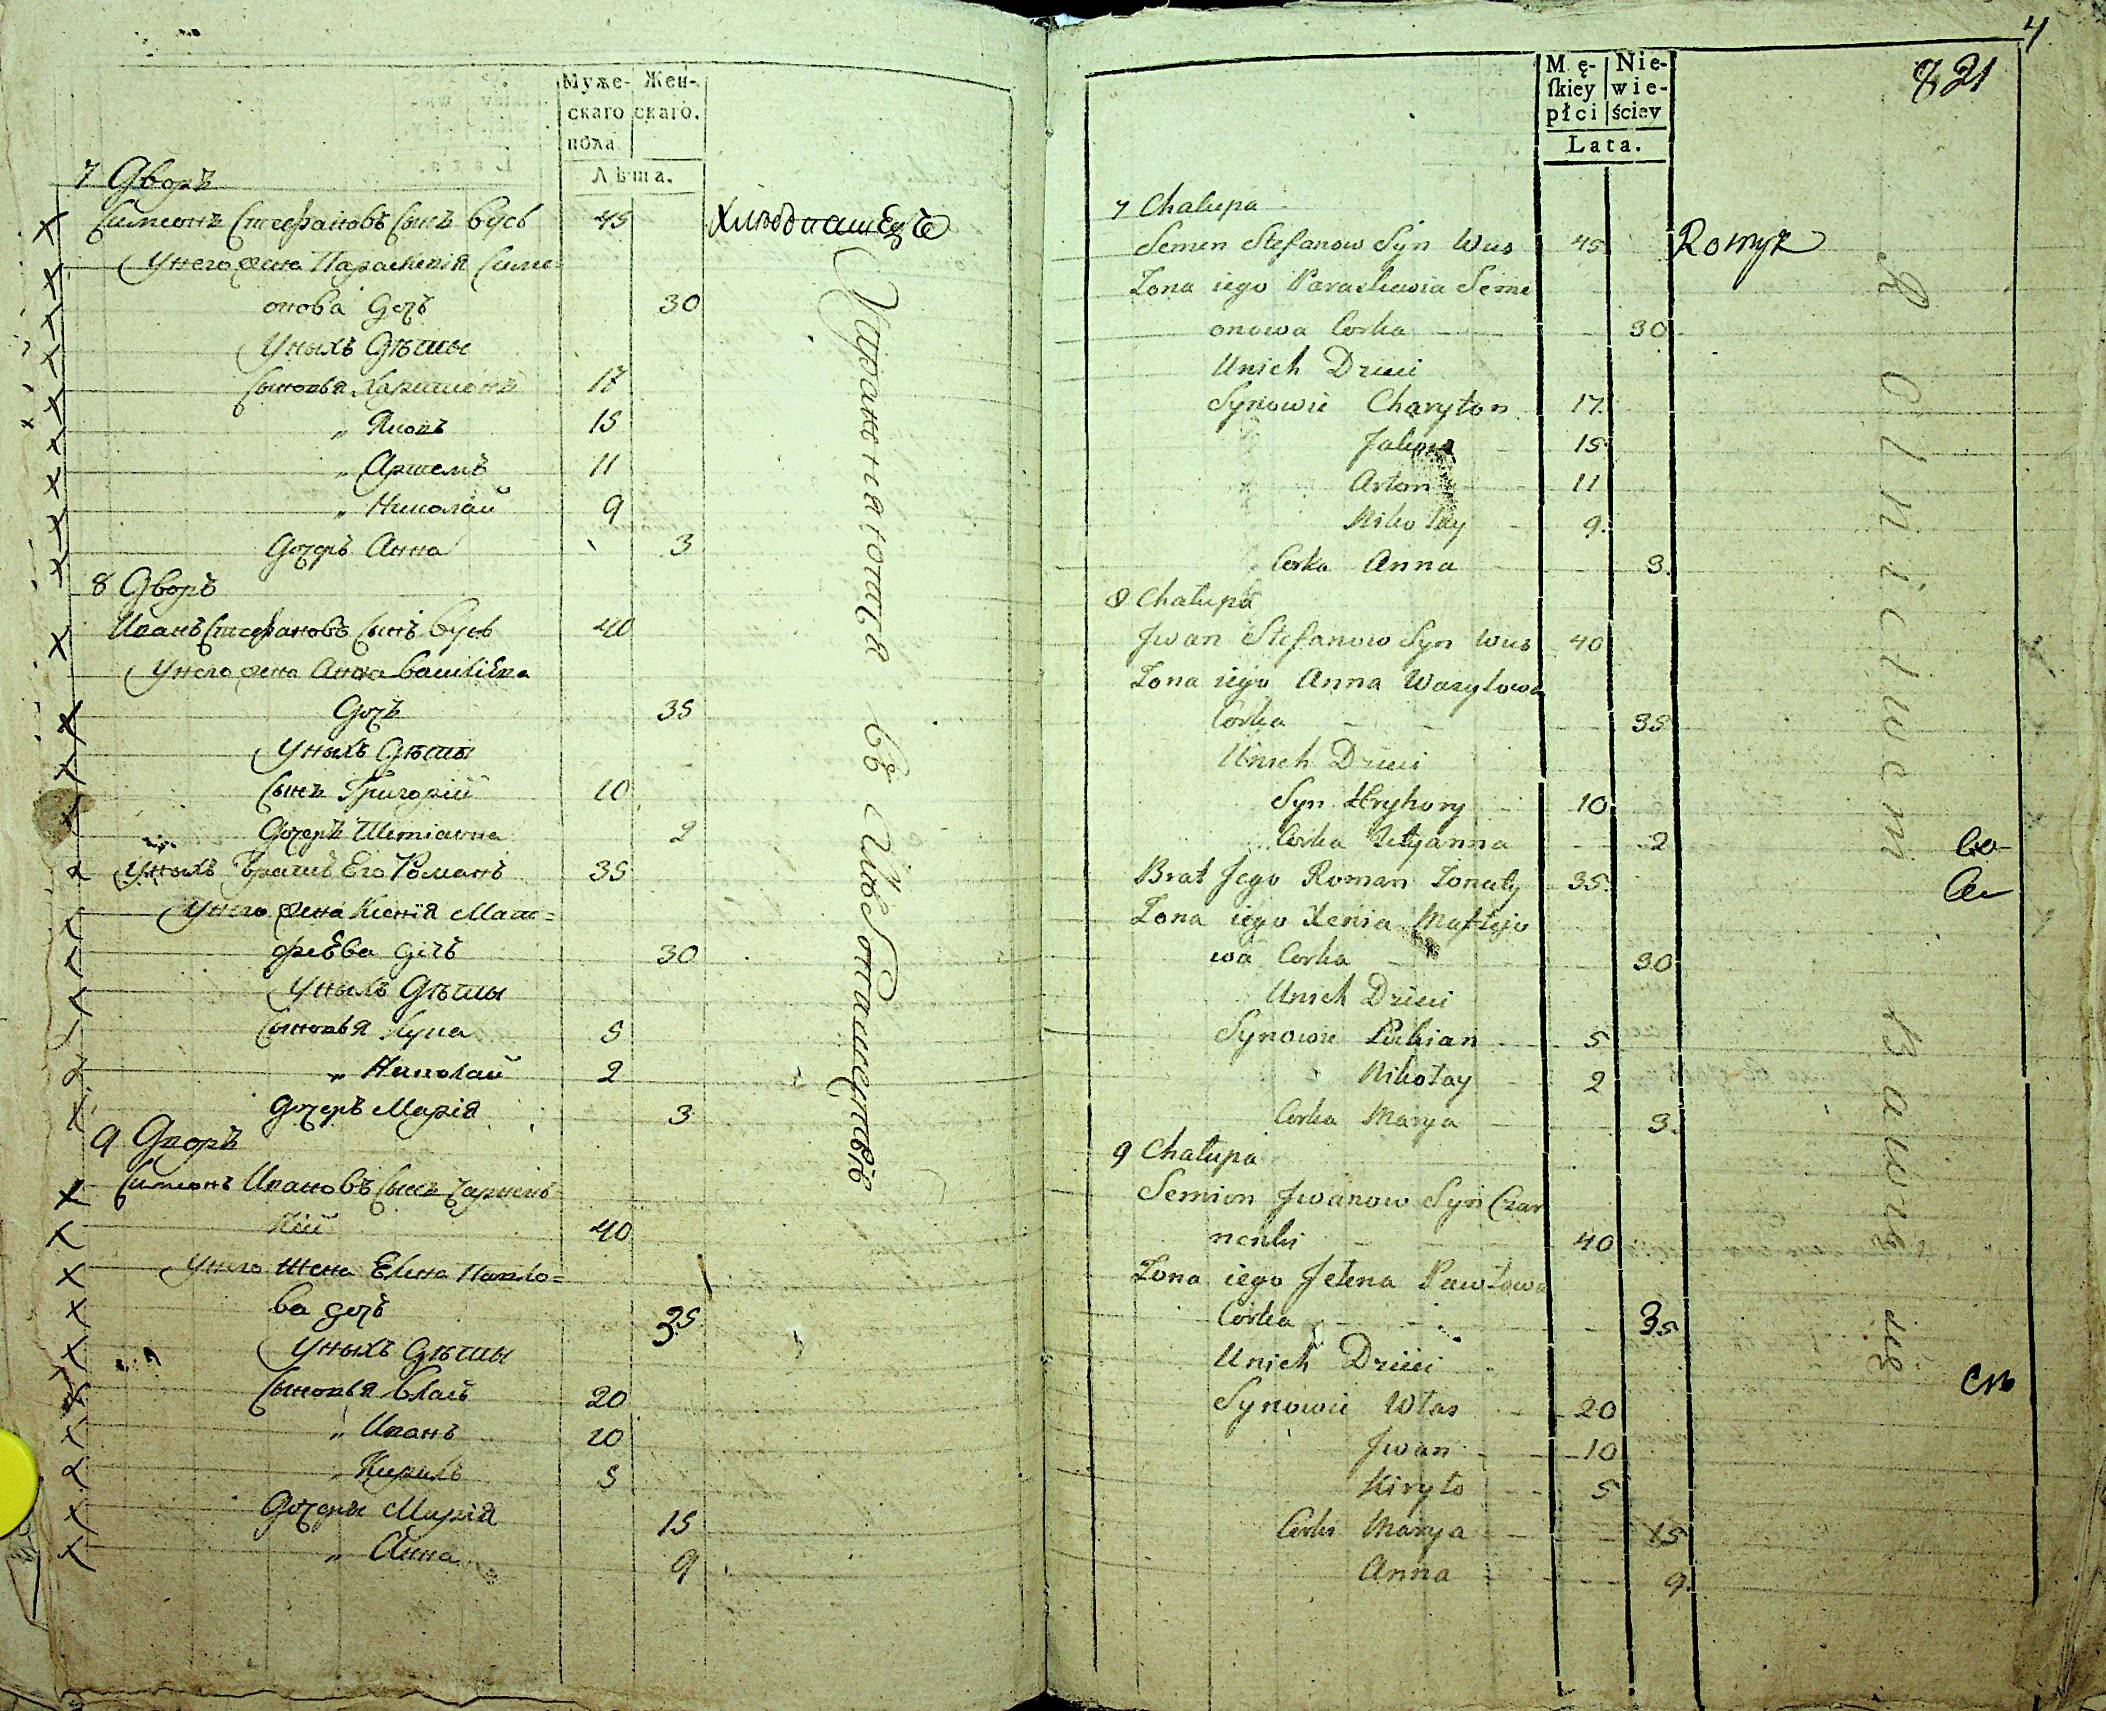 Муже-
скаго
пола
Жен-
скаго.
Лѣта.
7 Дворъ
Симеонъ Стефановъ Сынъ Вусь 45
Унего жена Параскевія Симе=
онова дочь 30
Уныхъ Дѣты
Сыновья Харитонъ 17
„ Яковъ 15
„ Артемъ 11
„ Николай 9
Дочерь Анна 3
8 Дворъ
Иванъ Стефановъ Сынъ Вусь 40
Унего жена Анна Василіева
Дочь 35
Уныхъ Дѣты
Сынъ Григорій 10
Дочерь 2
Уныхъ Братъ Его Романъ 35
Унего жена Ксенія Мат=
фѣева дочь 30
Уныхъ Дѣты
Сыновья 5
„ Николай 2
Дочерь Марія 3
9 Дворъ
Симеонъ Ивановъ Сынъ Чарнень
кій 40
Унего жена Елена Павло=
ва дочь 35
Уныхъ Дѣты
Сыновья Власъ 20
„ Иванъ 10
„ Кирилъ 5
Дочеры Марія 15
„ Анна 9
Хлѣбопашецъ
Упражняются въ Хлѣбопашествѣ
4
821
Mę-
ſkiey
płci
Nie-
wie-
ściey
Lata.
7 Chałupa
Semen Stefanow Syn Wus 45
Zona iego Paraskewia Seme
onowa Corka 30
Unich Dzieci
Synowie Charyton 17
Jakow 15
Artom 11
Nikołay 9
Corka Anna 3
8 Chałupa
Jwan Stefanow Syn Wus 40
Zona iego Anna Wasylowa
Corka 35
Unich Dzieci
Syn Hryhory 10
Corka 2
Brat Jego Roman Zonaty 35
Zona iego Xenia Mateje
wa Corka 30
Unich Dzieci
Synowie Łukian 5
Nikołay 2
Corka Marya 3
9 Chałupa
Semion Jwanow Syn Czar
nenki 40
Zona iego Jelena Pawłowa
Corka 35
Unich Dzieci
Synowie Włas 20
Jwan 10
Kiryło 5
Corki Marya 15
Anna 9
Rolnictwem Bawią się